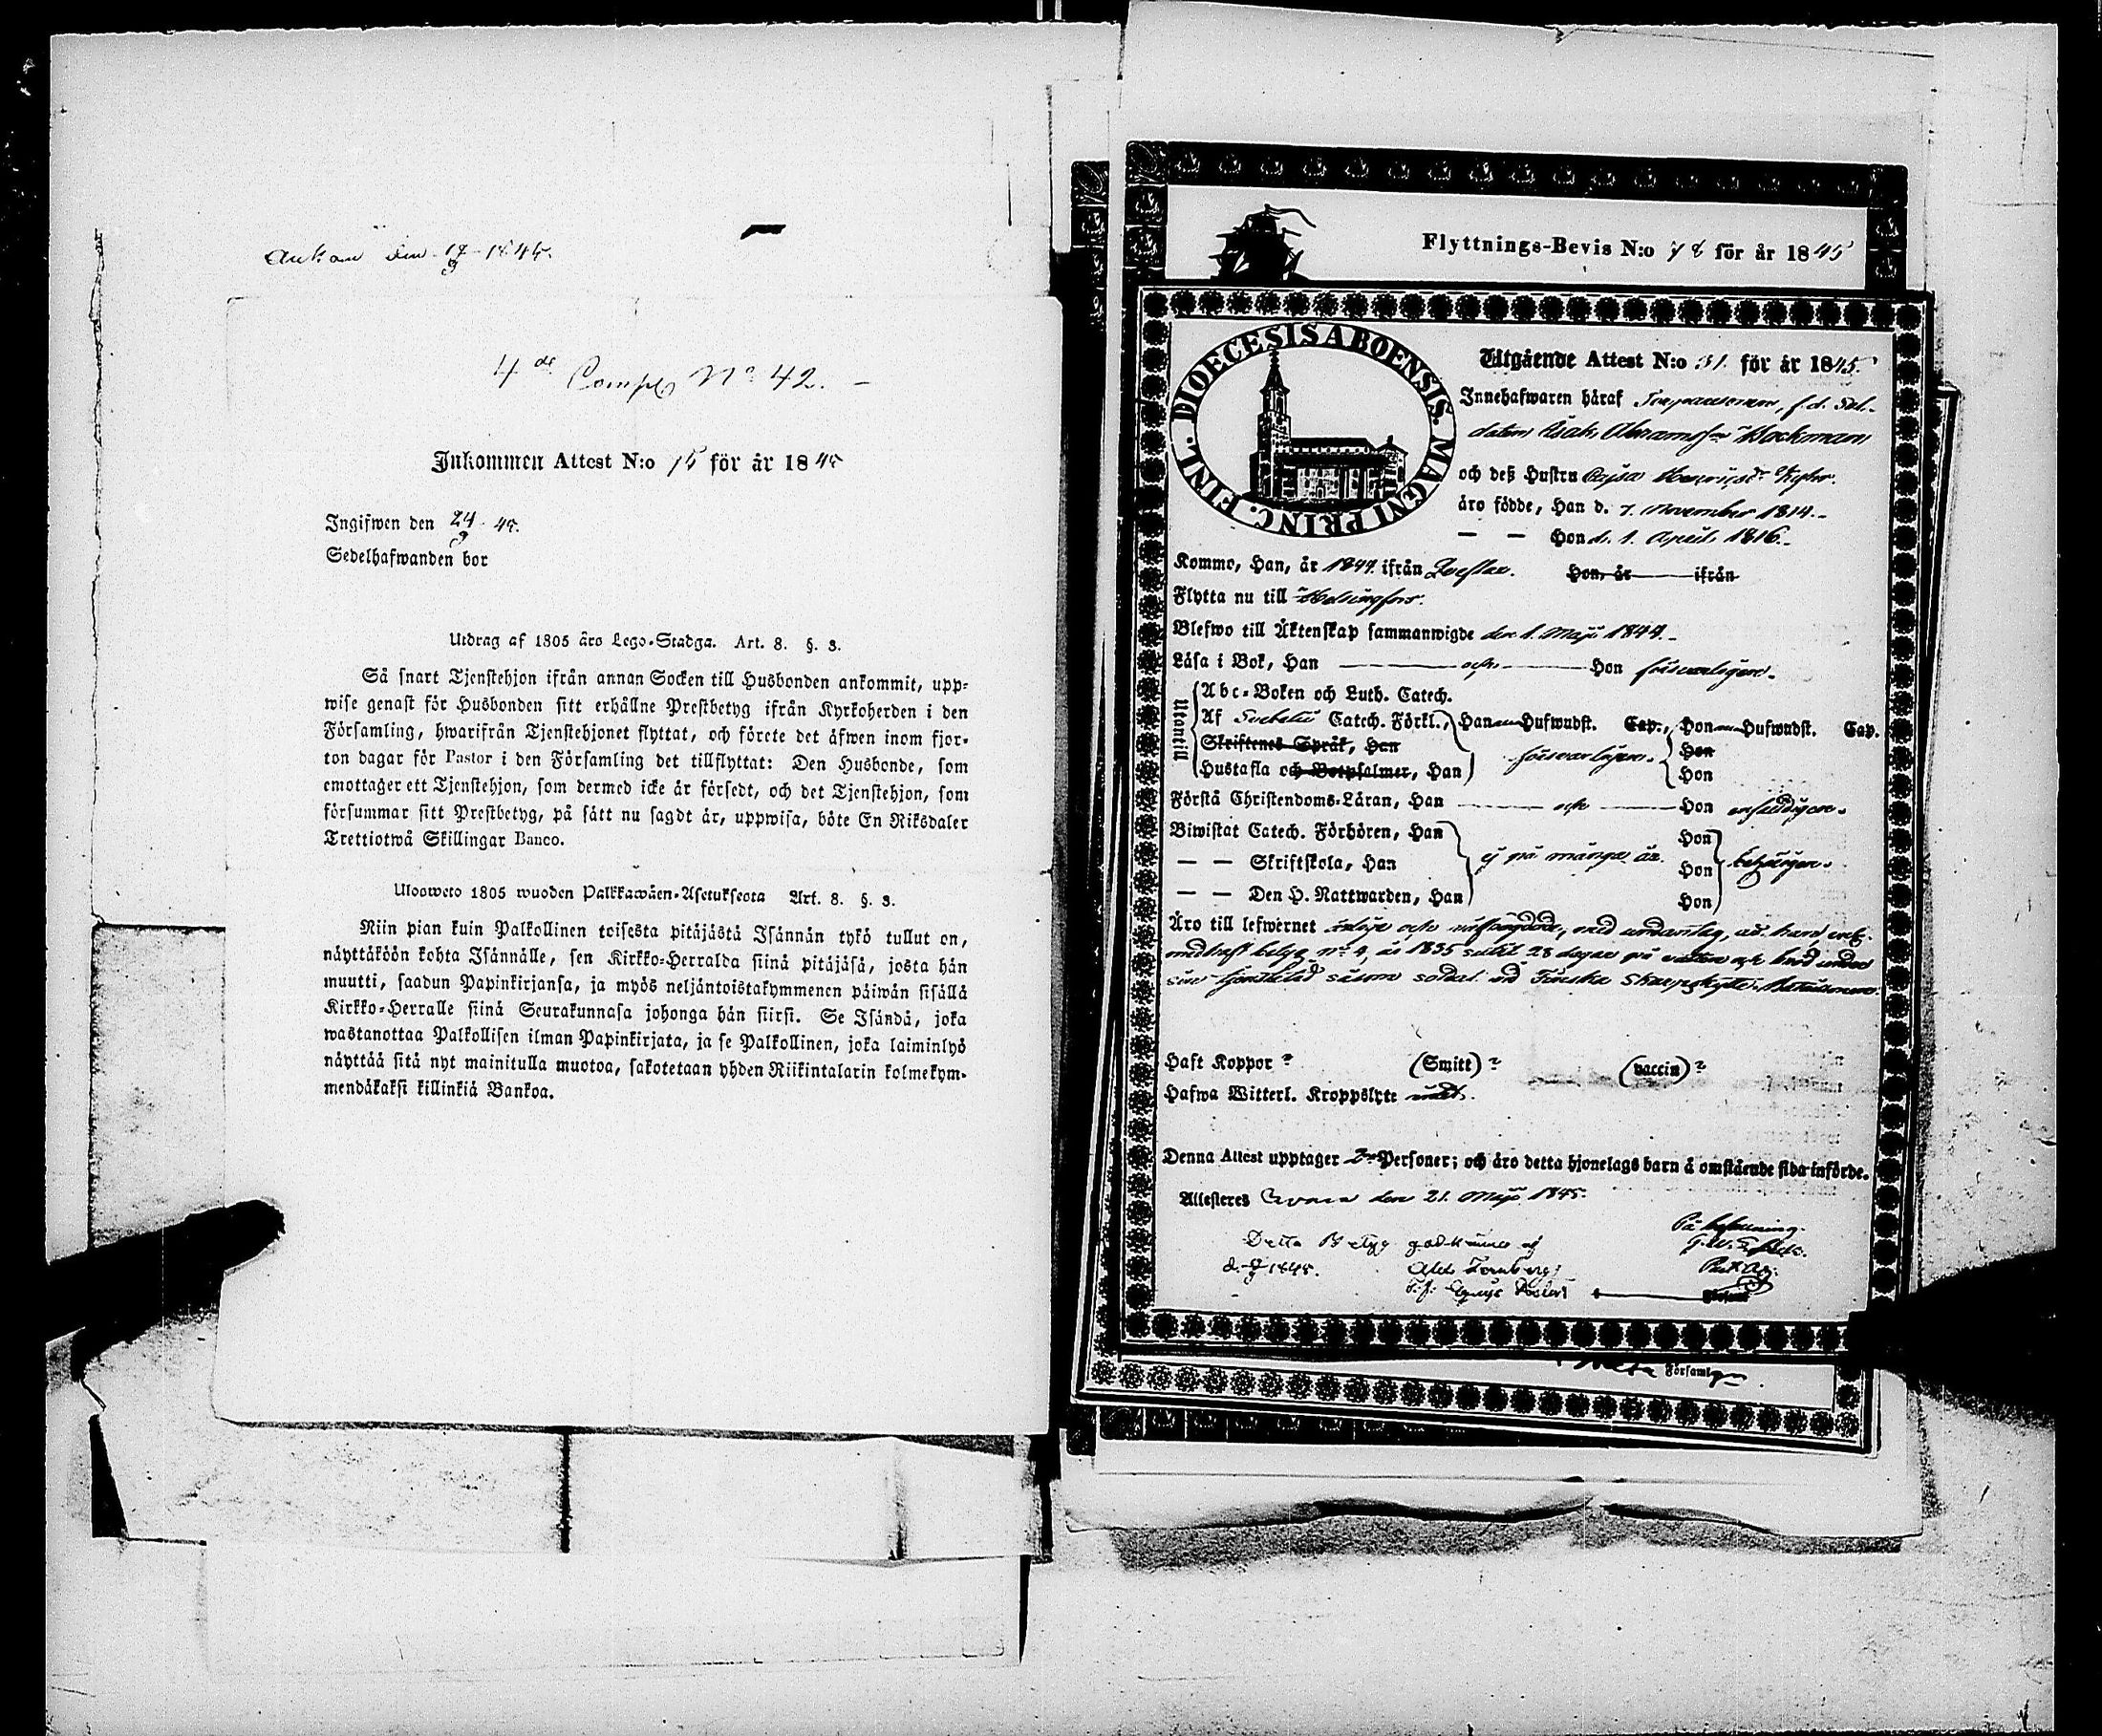 den 1845.
4de Comp. No 42. –
Inkommen Attest N:o 75 för år 1845
Ingifwen den 24/9 45.
Sedelhafwanden bor
Utdrag af 1805 års Lego-Stadga. Art. 8. §. 3.
Så snart Tjenstehjon ifrån annan Socken till Husbonden ankommit, upp-
wise genast för Husbonden sitt erhållne Prestbetyg ifrån Kyrkoherden i den
Församling, hwarifrån Tjenstehjonet flyttat, och förete det äfwen inom fjor-
ton dagar för Pastor i den Församling det tillflyttat: Den Husbonde, som
emottager ett Tjenstehjon, som dermed icke är försedt, och det Tjenstehjon, som
försummar sitt Prestbetyg, på sätt nu sagdt är, uppwisa, böte En Riksdaler
Trettiotwå Skillingar Banco.
Ulosweto 1805 wuoden Palkkawäen-Asetuksesta Art. 8. §. 3.
Niin pian kuin Palkollinen toisesta pitäjästä Isännän tykö tullut on,
näyttäköön kohta Isännälle, sen Kirkko-Herralda siinä pitäjäsä, josta hän
muutti, saadun Papinkirjansa, ja myös neljäntoistakymmenen päiwän sisällä
Kirkko-Herralle siinä Seurakunnasa johonga hän siirsi. Se Isändä, joka
wastanottaa Palkollisen ilman Papinkirjata, ja se Palkollinen, joka laiminlyö
näyttää sitä nyt mainitulla muotoa, sakotetaan yhden Riikintalarin kolmekym-
mendäkaksi killinkiä Bankoa.
Flyttnings-Bevis N:o 78 för år 1845
DIOECESIS ABOENSIS. MAGNI PRINC. FINL.
Utgående Attest N:o 31. för år 1845.
Innehafwaren häraf f.d. Sol-
daten Isak Abramsson Backman
och deß Hustru Cajsa Henricsdr
äro födde, Han d. 7. November 1814.
— — Hon d. 1. April 1816.
Kommo, Han, år 1844. ifrån Hon, år ifrån
Flytta nu till Helsingfors.
Blefwo till Äktenskap sammanwigde den 1. Maji 1844.
Läsa i Bok, Han och Hon försvarligen.
Utantill
Abc-Boken och Luth. Catech.
Af Svebelii Catech. Förkl., Han Hufwudst. Cap., Hon Hufwudst. Cap.
Skriftenes Språk, Han försvarligen. Hon
Hustafla och Botpsalmer, Han Hon
Förstå Christendoms-Läran, Han och Hon enfaldigen.
Biwistat Catech. Förhören, Han Hon
— — Skriftskola, Han ej på många år. Hon behörigen.
— — Den H. Nattwarden, Han Hon
Äro till lefwernet ärlige och välfrägdade, med undantag, at han, enl.
medhaft betyg, no 4, år 1835 suttit 28 dagar på vatten och bröd under
sin tjenstetid såsom soldat vid Finska Skarpskytte-Bataillonen.
Haft Koppor ? (Smitt) ? (vaccin) ?
Hafwa Witterl. Kroppslyte
Denna Attest upptager 2 Personer; och äro detta hjonelags barn å omstående sida införde.
Attesteres den 21. Maji 1845.
På befallning.
Detta Betyg af
1845.
Församl